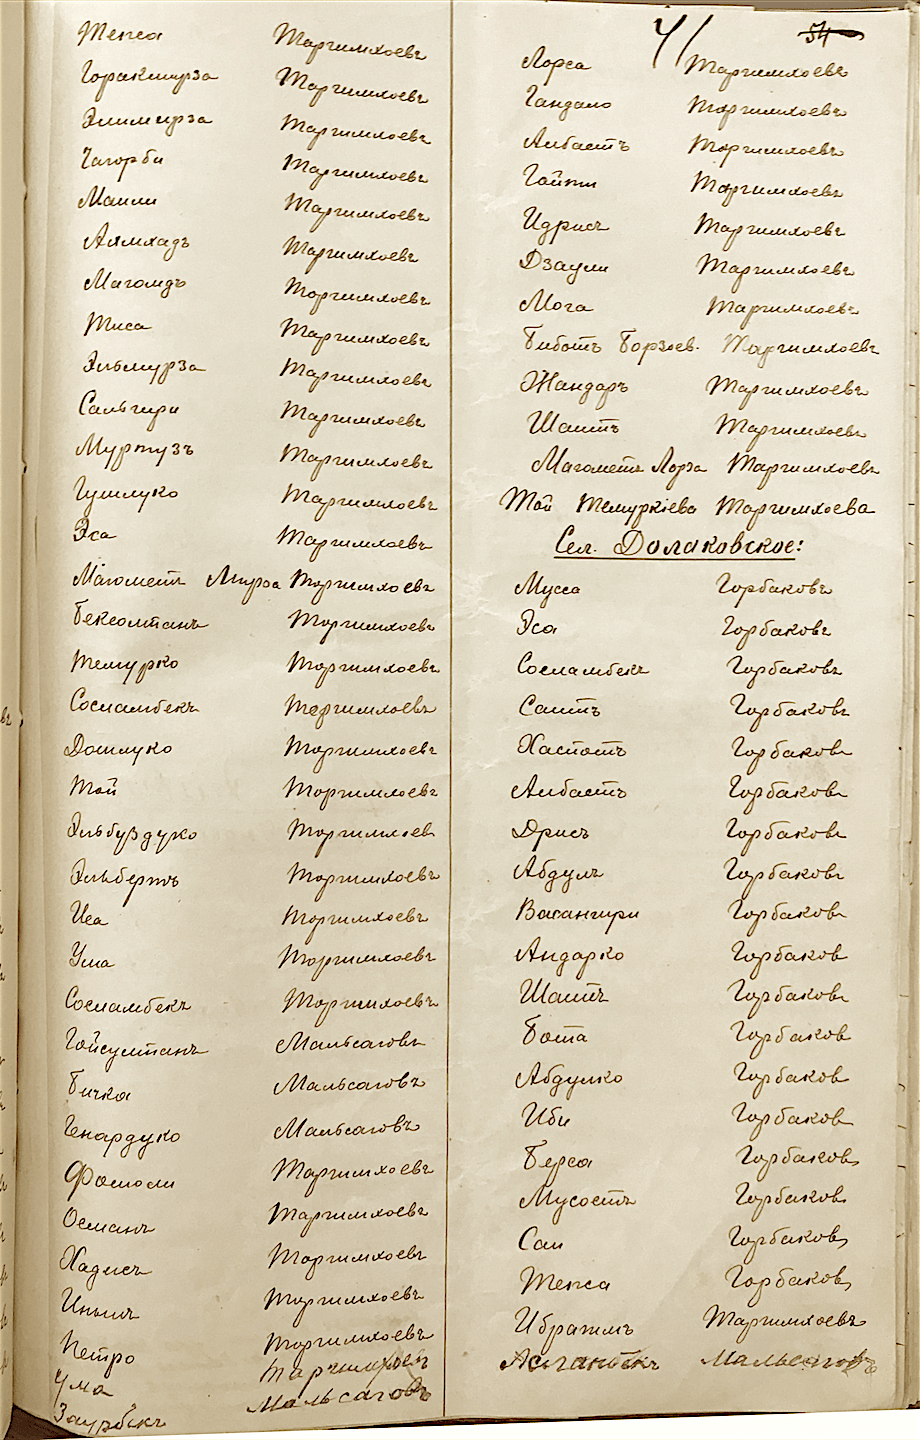 Тепса Таргимхоевъ
Горакмурза Таргимхоевъ
Элимирза Таргимхоевъ
Чагорби Таргимхоевъ
Маили Таргимхоевъ
Алмхадъ Таргимхоевъ
Магомдъ Таргимхоевъ
Тиса Таргимхоевъ
Эльмурза Таргимхоевъ
Сальгири Таргимхоевъ
Муртузъ Таргимхоевъ
Гушлуко Таргимхоевъ
Эса Таргимхоевъ
Магометъ Мирза Таргимхоевъ
Бексолтанъ Таргимхоевъ
Темурко Таргимхоевъ
Сосламбекъ Таргимхоевъ
Дошлуко Таргимхоевъ
Той Таргимхоевъ
Эльбуздуко Таргимхоев
Эльбертъ Таргимхоевъ
Иса Таргимхоевъ
Ума Таргимхоевъ
Сосламбекъ Таргимхоевъ
Гойсултанъ Мальсаговъ
Бичка Мальсаговъ
Генардуко Мальсаговъ
Таргимхоевъ
Османъ Таргимхоевъ
Хадисъ Таргимхоевъ
Таргимхоевъ
Петро Таргимхоевъ
Ума Таргимхоевъ
Заурбекъ Мальсаговъ
41 54
Лорса Таргимхоевъ
Гандало Таргимхоевъ
Албастъ Таргимхоевъ
Гайти Таргимхоевъ
Идрисъ Таргимхоевъ
Дзаули Таргимхоевъ
Мога Таргимхоевъ
Биботъ Борзоев. Таргимхоевъ
Жандаръ Таргимхоевъ
Шаитъ Таргимхоевъ
Магометъ Лорза Таргимхоевъ
Той Темуркiева Таргимхоева
Сел. Долаковское:
Мусса Горбаковъ
Эса Горбаковъ
Сосламбекъ Горбаковъ
Саитъ Горбаковъ
Хаспотъ Горбаковъ
Албастъ Горбаковъ
Дрисъ Горбаковъ
Абдулъ Горбаковъ
Васангири Горбаковъ
Андарко Горбаковъ
Шаитъ Горбаковъ
Бота Горбаковъ
Абдулко Горбаковъ
Иби Горбаковъ
Берса Горбаковъ
Мусостъ Горбаковъ
Саи Горбаковъ
Тепса Горбаковъ
Ибрагимъ Таргимхоевъ
Асланбекъ Мальсаговъ